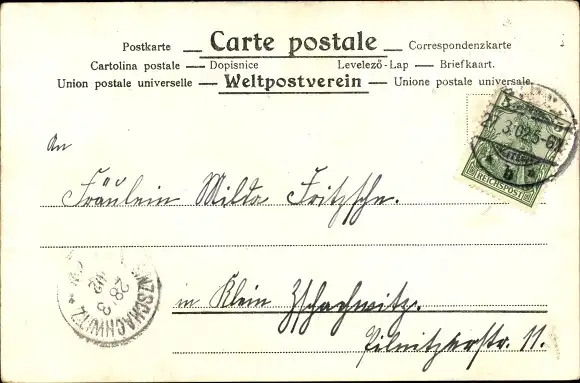 Postkarte — Carte postale — Correspondenzkarte
Cartolina postale — Dopisnice Levelező-Lap — Briefkaart.
Union postale universelle — Weltpostverein — Unione postale universale.
5 5
27.3.02.5-6N.
* b *
REICHSPOST
An
Fräulein Milda Fritzsche.
in Klein Zschachwitz.
Pilnitzerstr. 11.
ZSCHACHWITZ
28 3
02